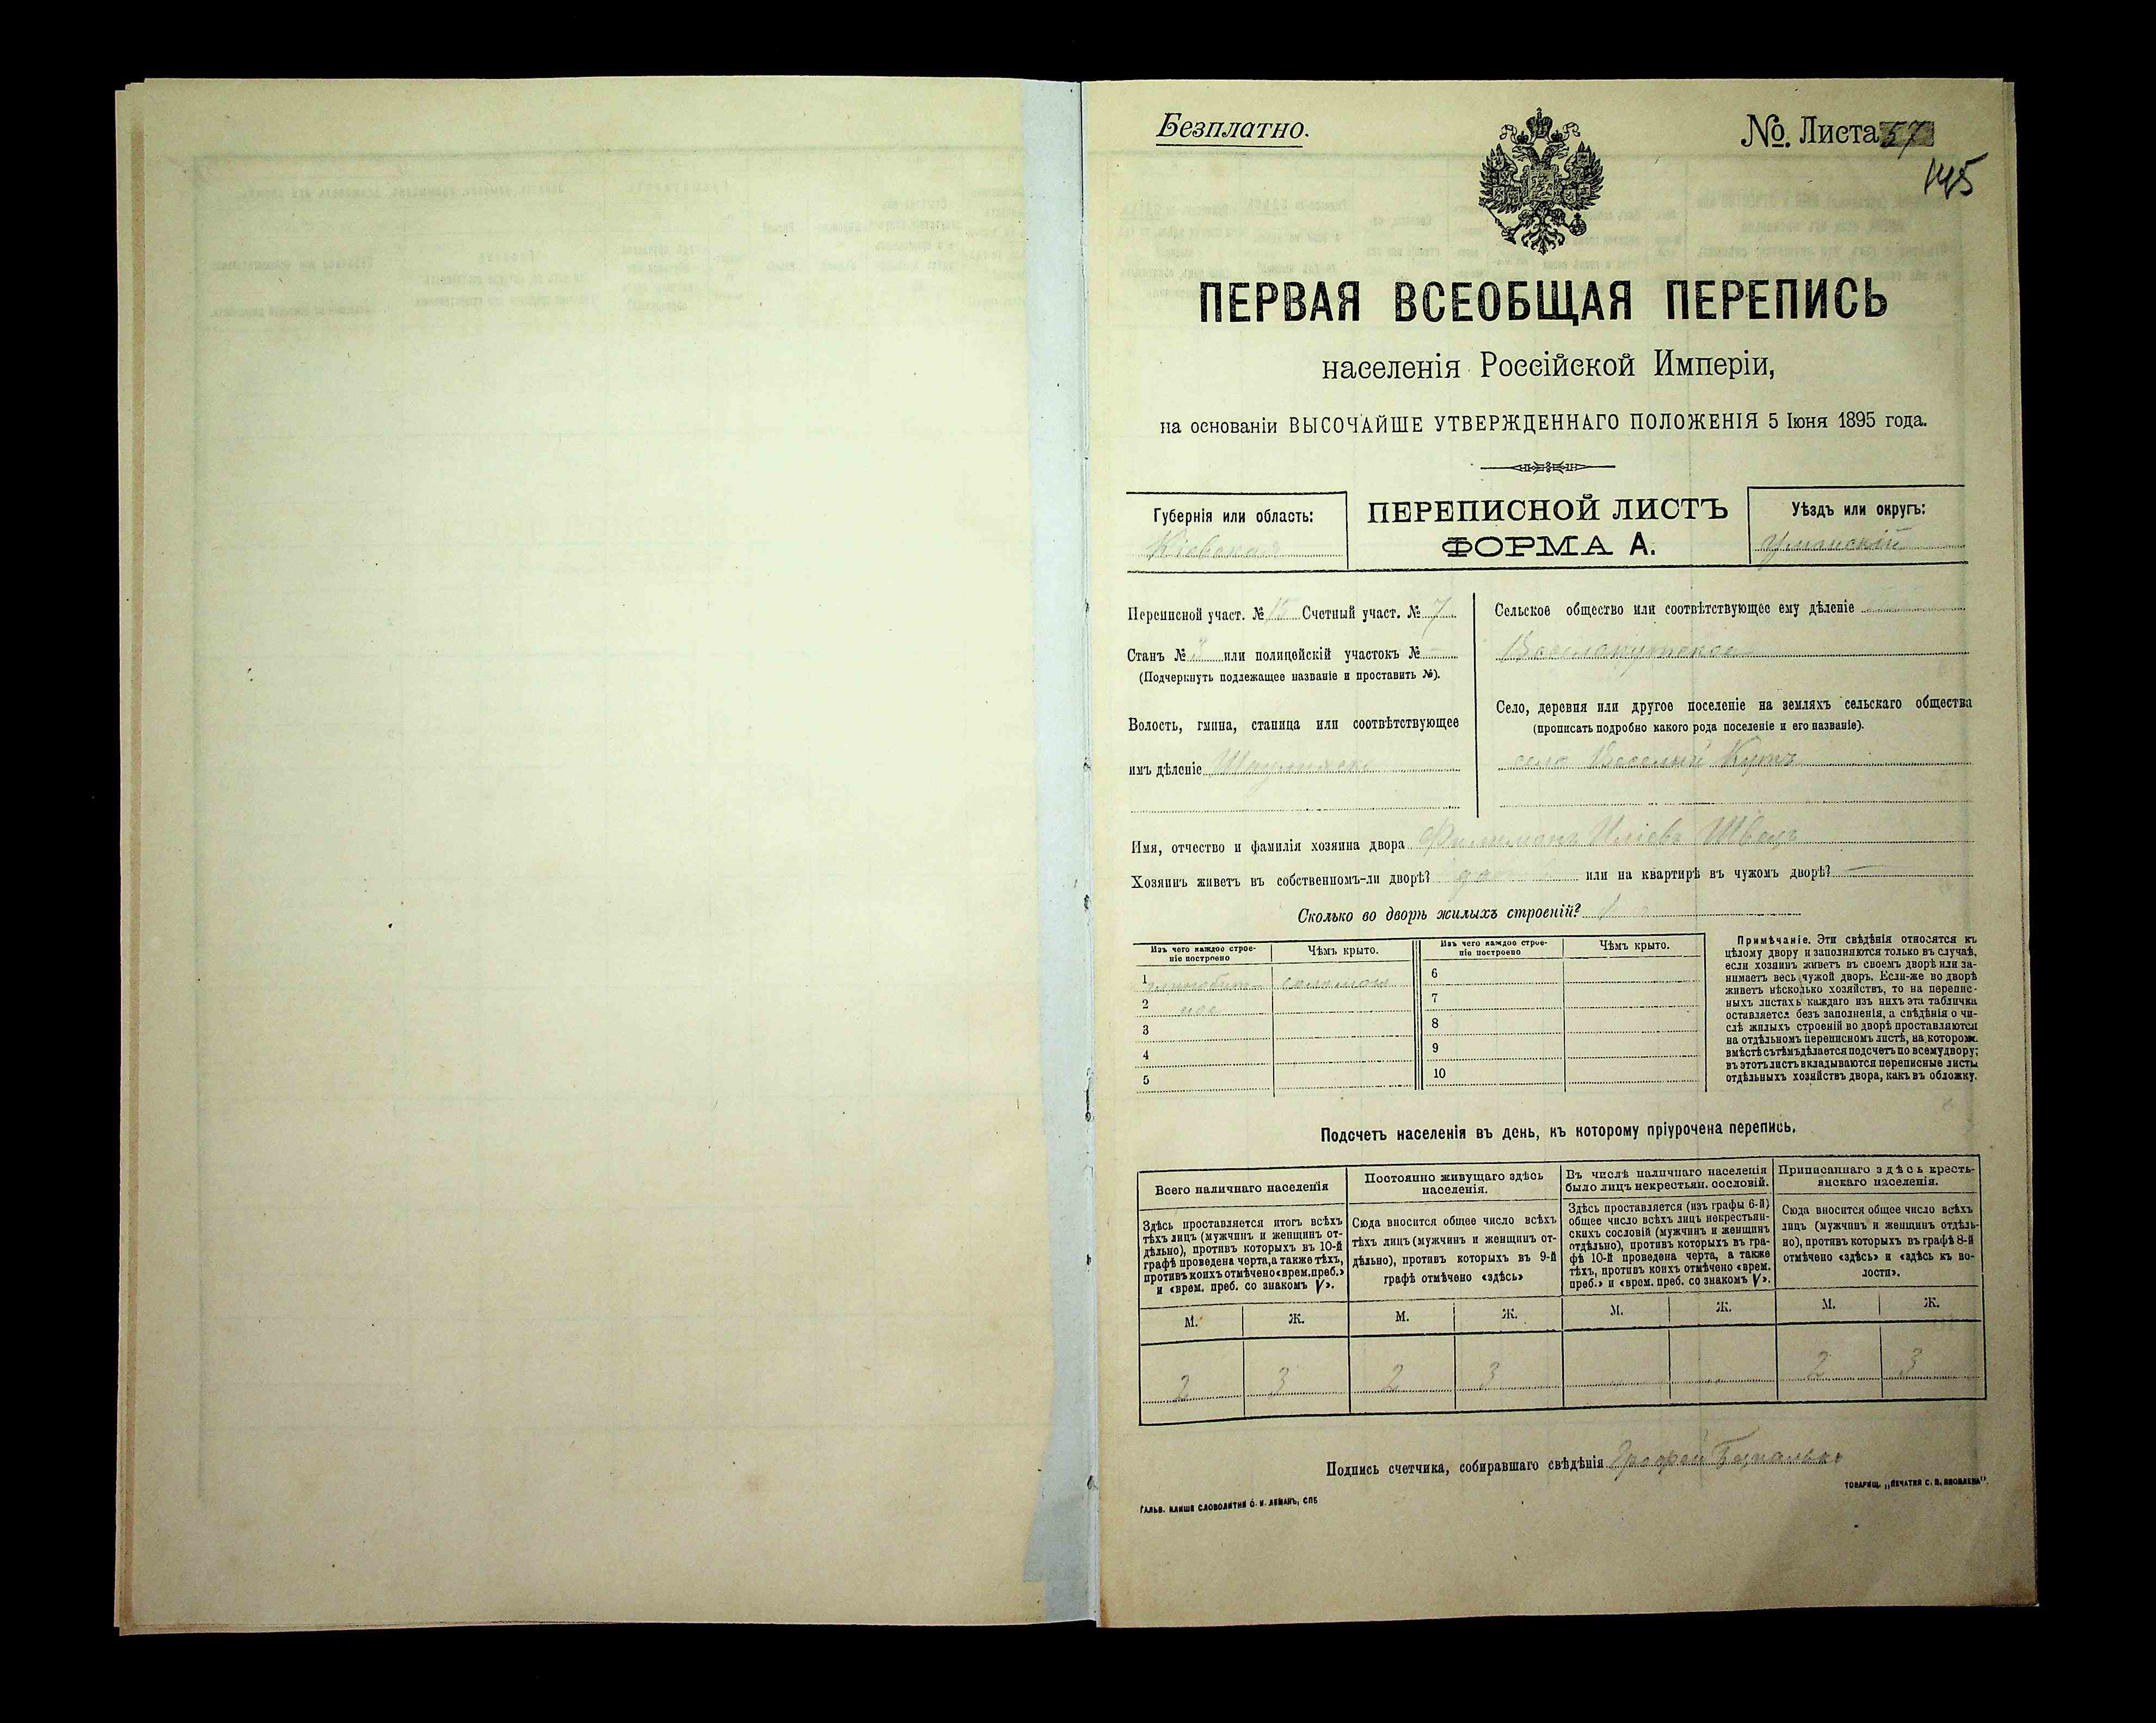 Безплатно.
№. Листа 57
145
ПЕРВАЯ ВСЕОБЩАЯ ПЕРЕПИСЬ
населенія Россійской Имперіи,
на основаніи ВЫСОЧАЙШЕ УТВЕРЖДЕННАГО ПОЛОЖЕНІЯ 5 Іюня 1895 года.
Губернія или область:
Кіевская
ПЕРЕПИСНОЙ ЛИСТЪ
ФОРМА А.
Уѣздъ или округъ:
Уманскій
Переписной участ. № 15 Счетный участ. № 7
Станъ № 3 или полицейскій участокъ № —
(Подчеркнуть подлежащее названіе и проставить №).
Волость, гмина, станица или соотвѣтствующее
имъ дѣленіе
Сельское общество или соотвѣтствующее ему дѣленіе
Веселокутское
Село, деревня или другое поселеніе на земляхъ сельскаго общества
(прописать подробно какого рода поселеніе и его названіе).
село Веселый Кутъ
Имя, отчество и фамилія хозяина двора Филимонъ Иліевъ Швець
Хозяинъ живетъ въ собственномъ-ли дворѣ? да или на квартирѣ въ чужомъ дворѣ? —
Сколько во дворѣ жилыхъ строеній? 1
Изъ чего каждое строе-
ніе построено
Чѣмъ крыто.
Изъ чего каждое строе-
ніе построено
Чѣмъ крыто.
1 глинобит- соломою
2 ное
3
4
5
6
7
8
9
10
Примѣчаніе. Эти свѣдѣнія относятся къ
цѣлому двору и заполняются только въ случаѣ,
если хозяинъ живетъ въ своемъ дворѣ или за-
нимаетъ весь чужой дворъ. Если-же во дворѣ
живетъ нѣсколько хозяйствъ, то на перепис-
ныхъ листахъ каждаго изъ нихъ эта табличка
оставляется безъ заполненія, а свѣдѣнія о чи-
слѣ жилыхъ строеній во дворѣ проставляются
на отдѣльномъ переписномъ листѣ, на которомъ
вмѣстѣ съ тѣмъ дѣлается подсчетъ по всему двору;
въ этотъ листъ вкладываются переписные листы
отдѣльныхъ хозяйствъ двора, какъ въ обложку.
Подсчетъ населенія въ день, къ которому пріурочена перепись.
Всего наличнаго населенія
Здѣсь проставляется итогъ всѣхъ
тѣхъ лицъ (мужчинъ и женщинъ от-
дѣльно), противъ которыхъ въ 10-й
графѣ проведена черта, а также тѣхъ,
противъ коихъ отмѣчено «врем. преб.»
и «врем. преб. со знакомъ V».
Постоянно живущаго здѣсь
населенія.
Сюда вносится общее число всѣхъ
тѣхъ лицъ (мужчинъ и женщинъ от-
дѣльно), противъ которыхъ въ 9-й
графѣ отмѣчено «здѣсь»
Въ числѣ наличнаго населенія
было лицъ некрестьян. сословій.
Здѣсь проставляется (изъ графы 6-й)
общее число всѣхъ лицъ некрестьян-
скихъ сословій (мужчинъ и женщинъ
отдѣльно), противъ которыхъ въ гра-
фѣ 10-й проведена черта, а также
тѣхъ, противъ коихъ отмѣчено «врем.
преб.» и «врем. преб. со знакомъ V».
Приписаннаго здѣсь кресть-
янскаго населенія.
Сюда вносится общее число всѣхъ
лицъ (мужчинъ и женщинъ отдѣль-
но), противъ которыхъ въ графѣ 8-й
отмѣчено «здѣсь» и «здѣсь къ во-
лости».
М. Ж. М. Ж. М. Ж. М. Ж.
2 3 2 3 2 3
Подпись счетчика, собиравшаго свѣдѣнія
ГАЛЬВ. КЛИШЕ СЛОВОЛИТНИ О. И. ЛЕМАНЪ, СПБ
ТОВАРИЩ. „ПЕЧАТНЯ С. П. ЯКОВЛЕВА".